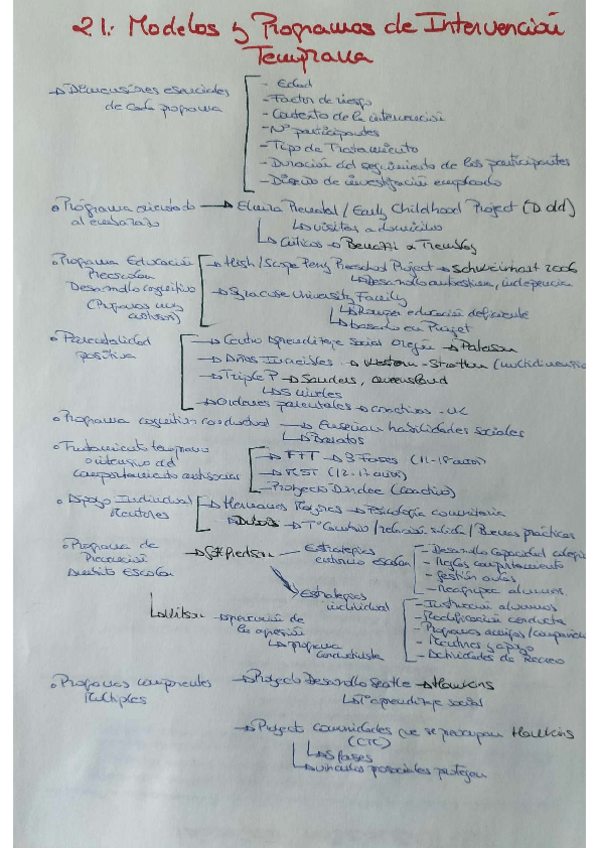 21.- Modelos y Programas de Intervención
Temprana
→ Dimensiones esenciales
de cada programa
- Edad
- Factor de riesgo
- Contexto de la intervención
- Nº participantes
- Tipo de Tratamiento
- Duración del seguimiento de los participantes
- Diseño de investigación empleado
• Programa orientado → Elmira Prenatal / Early Childhood Project (D. Old)
al embarazo
↳ visitas a domicilio
↳ Críticas → y Tremblay
• Programa Educación
Preescolar
Desarrollo cognitivo
(Programas muy
→ High/Scope Perry Preschool Project → Schweinhart 2006
↳ Desarrollo autoestima, independencia
→ Syracuse University Family
↳ educación deficiente
↳ basado en Piaget
• Parentalidad
positiva
→ Centro Aprendizaje Social Oregón → Paterson
→ Años Increíbles → Webster-Stratton
→ Triple P → Sanders, Queensland
↳ 5 niveles
→ Ordenes parentales → coactivos - UK
• Programa cognitivo conductual → Enseñan habilidades sociales
↳ Baratos
• Tratamiento temprano
intensivo del
comportamiento antisocial
→ 3 Fases (11-18 años)
→ (12-17 años)
→ Proyecto (coactivo)
• Apoyo Individual
Mentores
→ Hermanos Mayores → Psicología comunitaria
→ Tº Control / relación sólida / Buenas prácticas
• Programa de
Prevención
ámbito Escolar
→ Gottfredson
Estrategias
entorno escolar
- Desarrollo Capacidad
- Reglas comportamiento
- Gestión aulas
- Reagrupar alumnos
Estrategias
individual
- Instrucción alumnos
- Modificación conducta
- Programas amigos/
- Mentores y apoyo
- Actividades de Recreo
↳ Wilson → prevención de
la agresión
↳ programa
conductista
• Programas componentes
Múltiples
→ Proyecto Desarrollo Seatle → Hawkins
↳ Tº aprendizaje social
→ Project comunidades que se preocupan Hawkins
(CTC)
↳ 5 fases
↳ vínculos prosociales protegen